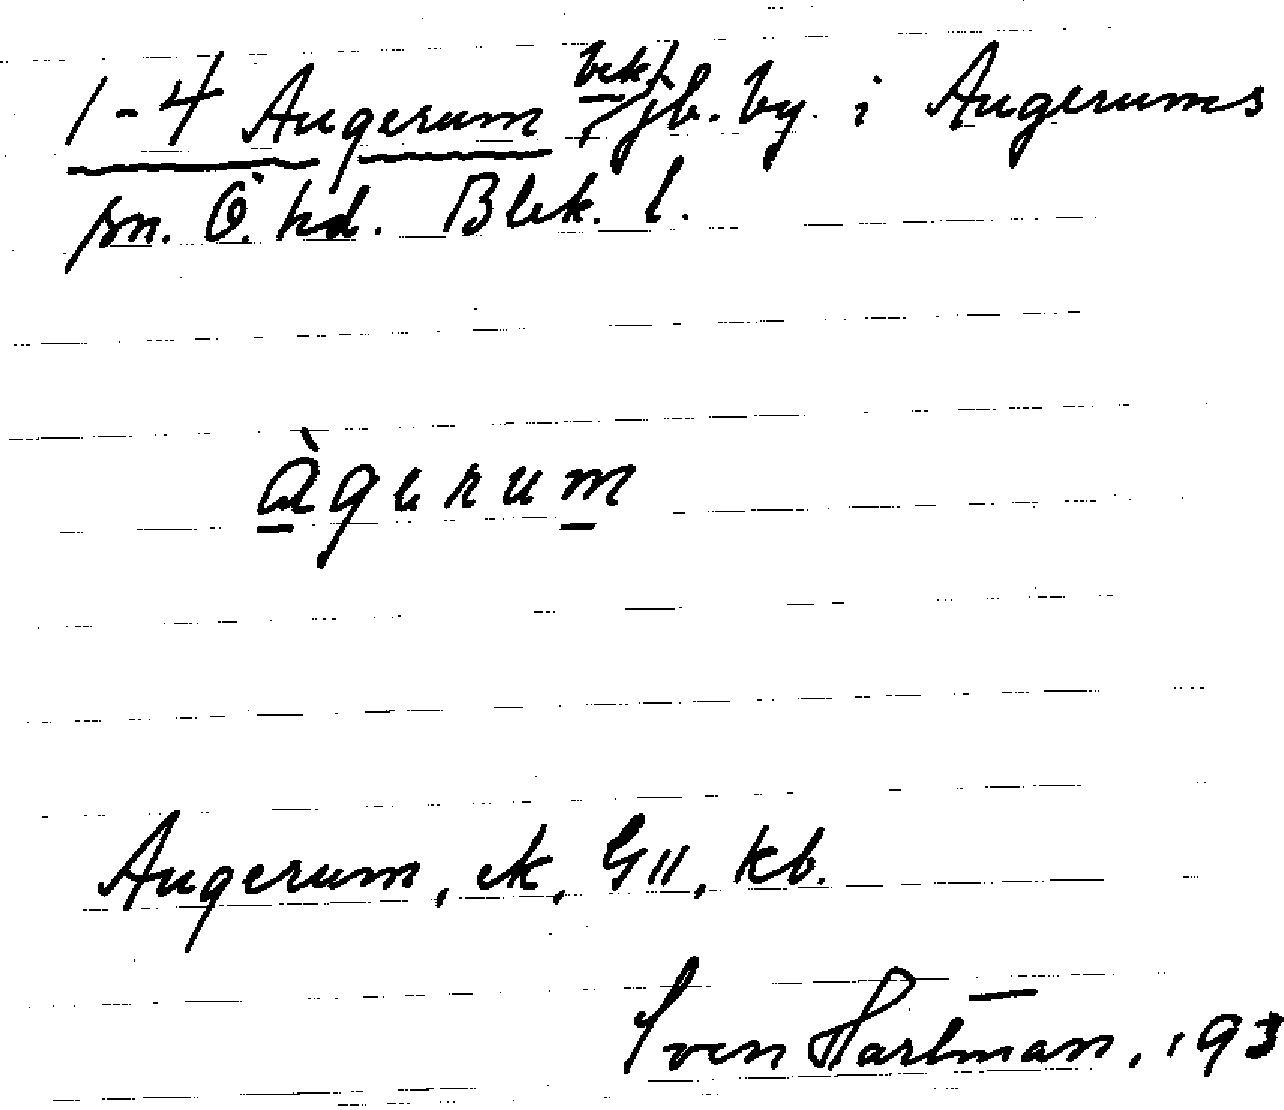 1-4 Augerum bek. jb. by. i Augerums
sn. Ö. hd. Blek. l.
àgerum
Augerum, ek, G11, kb.
Sven Hartman, 193